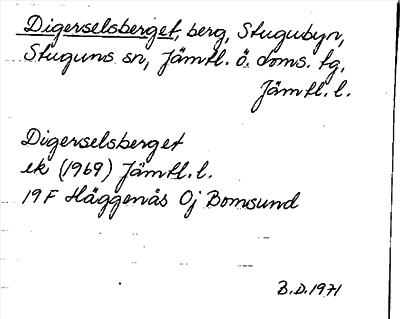 Digerselsberget, berg, Stugubyn,
Stuguns sn, Jämtl. ö. doms. tg,
Jämtl. l.
Digerselsberget
ek (1969) Jämtl. l.
19F Häggenås Oj Bomsund
B.D. 1971